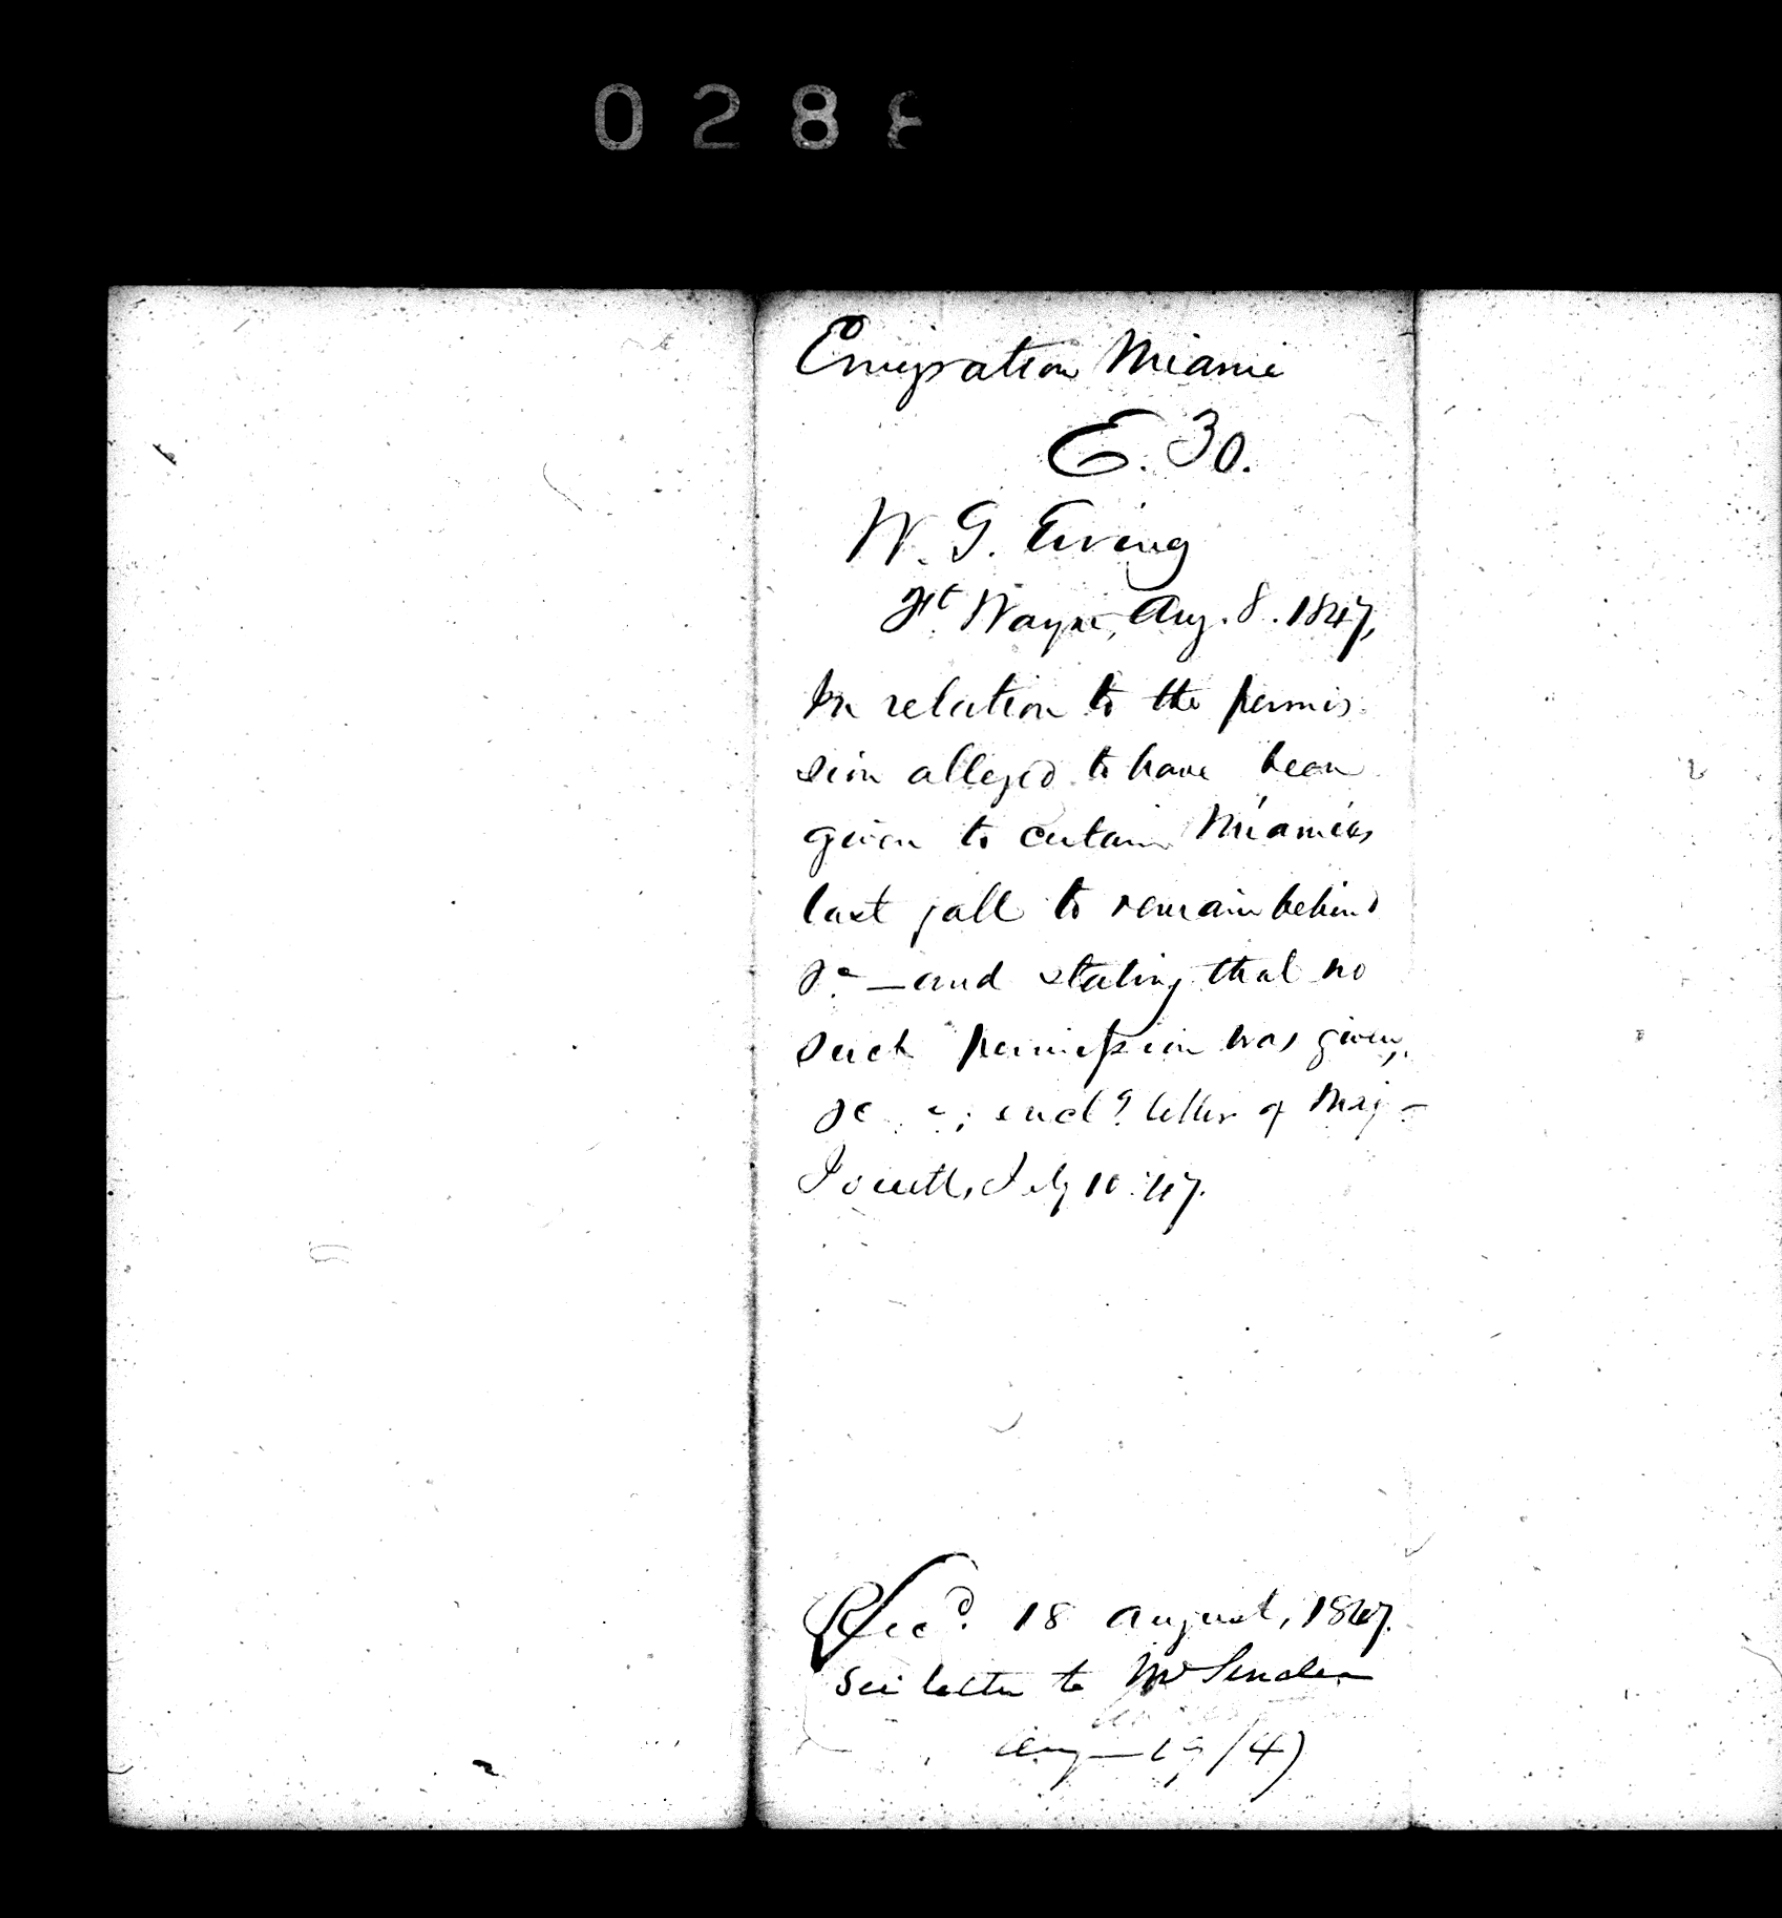 028
Emigration Miamie
E. 30.
W. G. Ewing
Ft. Wayne, Aug. 8. 1847,
In relation to the permis
sion alleged to have been
given to certain Miamies
last fall to remain behind
&c — and stating that no
such permission was given,
&c; encl? letter of Maj
July 10. 47.
Recd. 18 August, 1847.
See letter to Mr
Aug — 19 / 47